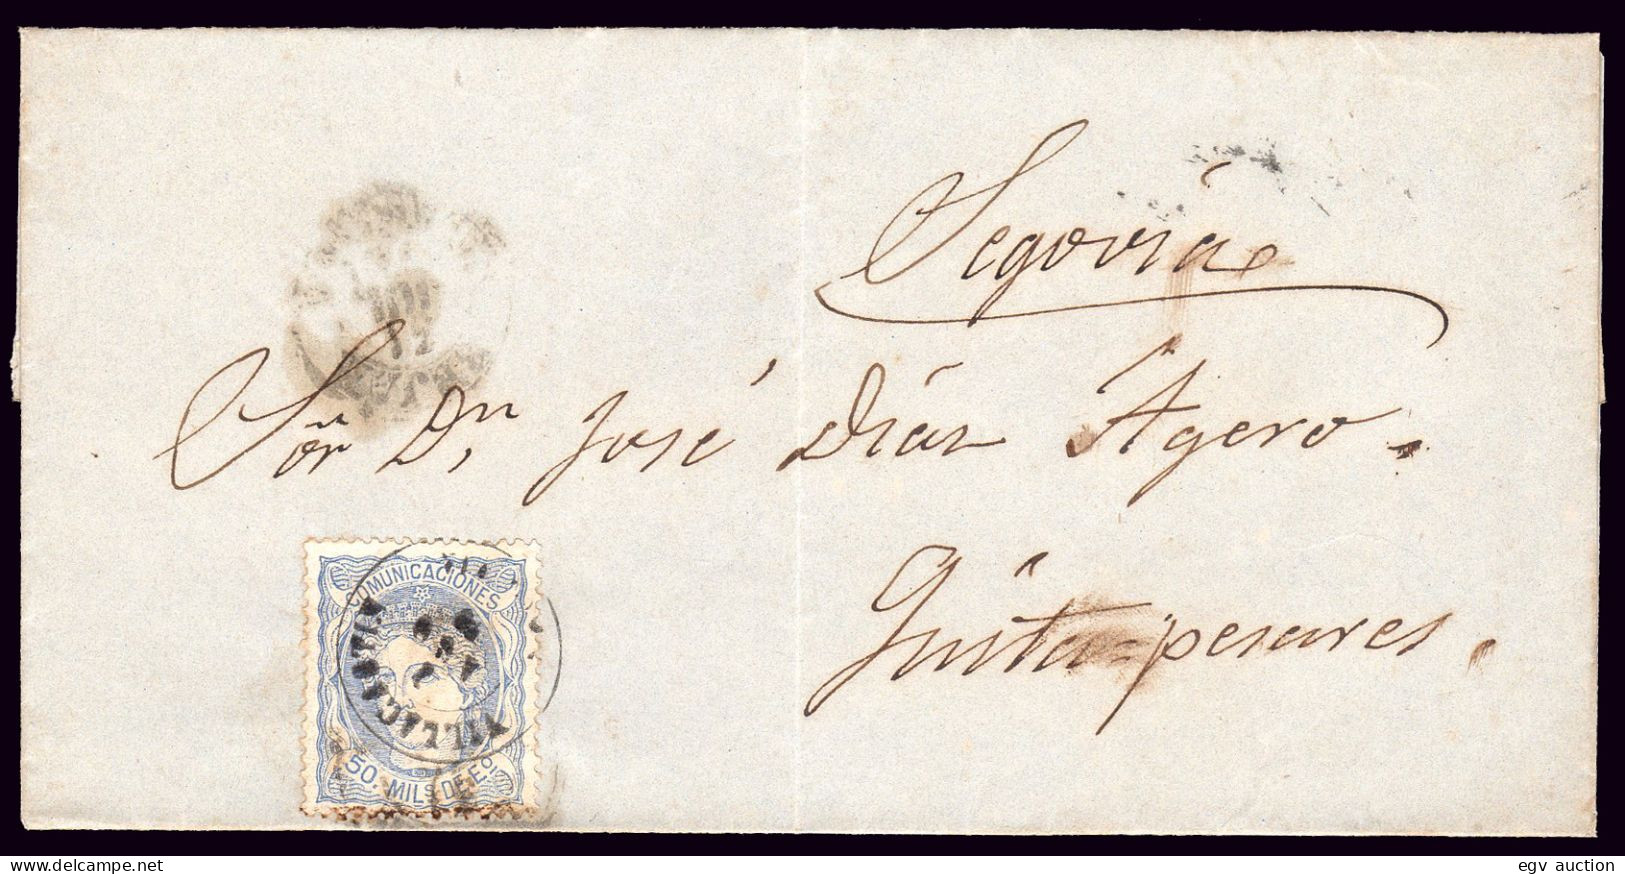 Segovia
Sor. Dn. José Diáz Agero.
Justa=pesares.
COMUNICACIONES
50. MILS. DE Eo
VILLACASTIN
delcampe.net
egv auction